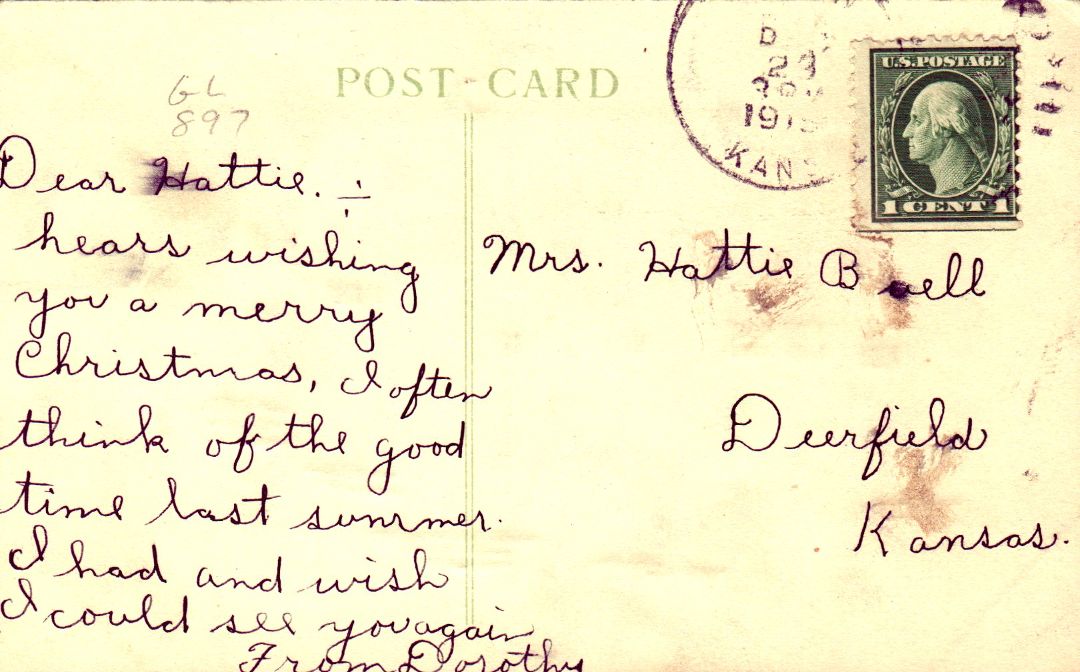 POST-CARD
GL
897
D
23
KANS
U.S.POSTAGE
1 CENT 1
Dear Hattie. ÷
hears wishing
you a merry
Christmas, I often
think of the good
time last summer.
I had and wish
I could see you again
From Dorothy
Mrs. Hattie Buell
Deerfield
Kansas.